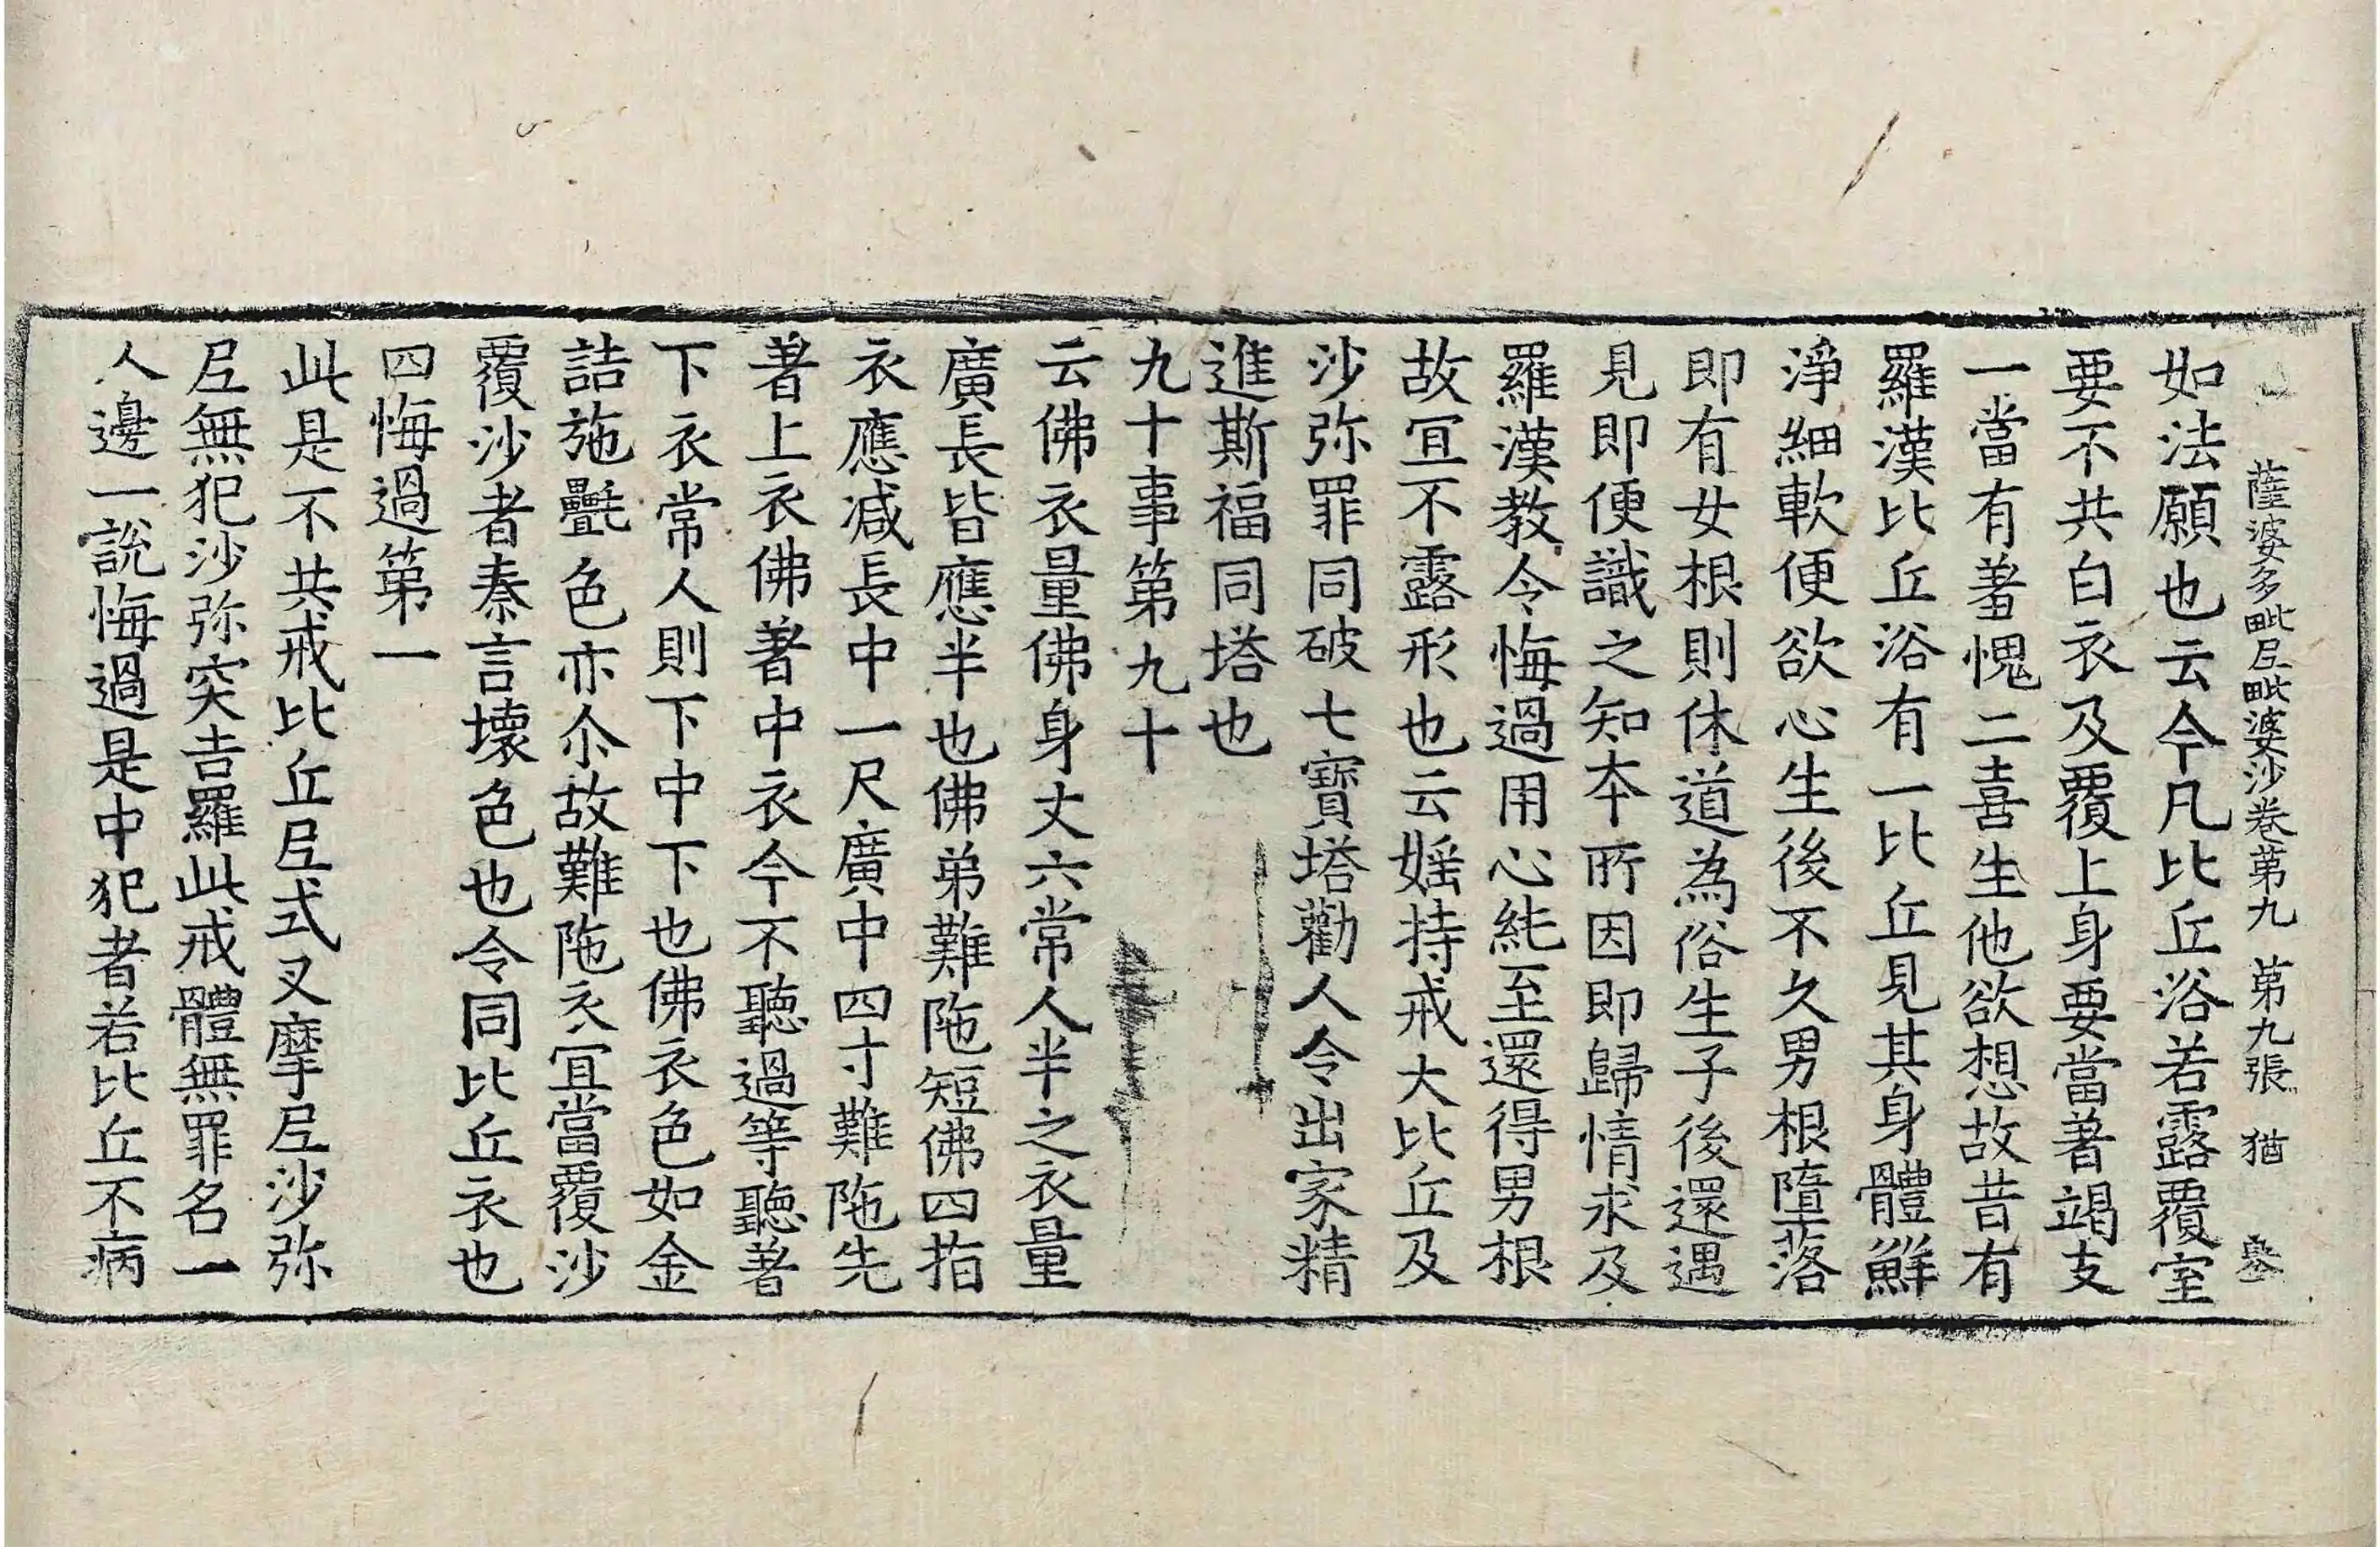 薩婆多毗尼毗婆沙卷第九 第九張 猶
如法願也云今凡比丘浴若露覆室
要不共白衣及覆上身要當著竭支
一當有羞愧二喜生他欲想故昔有
羅漢比丘浴有一比丘見其身體鮮
淨細軟便欲心生後不久男根墮落
即有女根則休道為俗生子後還遇
見即便識之知本所因即歸情求及
羅漢教令悔過用心純至還得男根
故冝不露形也云婬持戒大比丘及
沙弥罪同破七寶塔勸人令出家精
進斯福同塔也
九十事第九十
云佛衣量佛身丈六常人半之衣量
廣長皆應半也佛弟難陁短佛四指
衣應減長中一尺廣中四寸難陁先
著上衣佛著中衣今不聽過等聽著
下衣常人則下中下也佛衣色如金
詰施㲲色亦尒故難陁衣冝當覆沙
覆沙者秦言壞色也令同比丘衣也
四悔過第一
此是不共戒比丘尼式叉摩尼沙弥
尼無犯沙弥突吉羅此戒體無罪名一
人邊一說悔過是中犯者若比丘不病